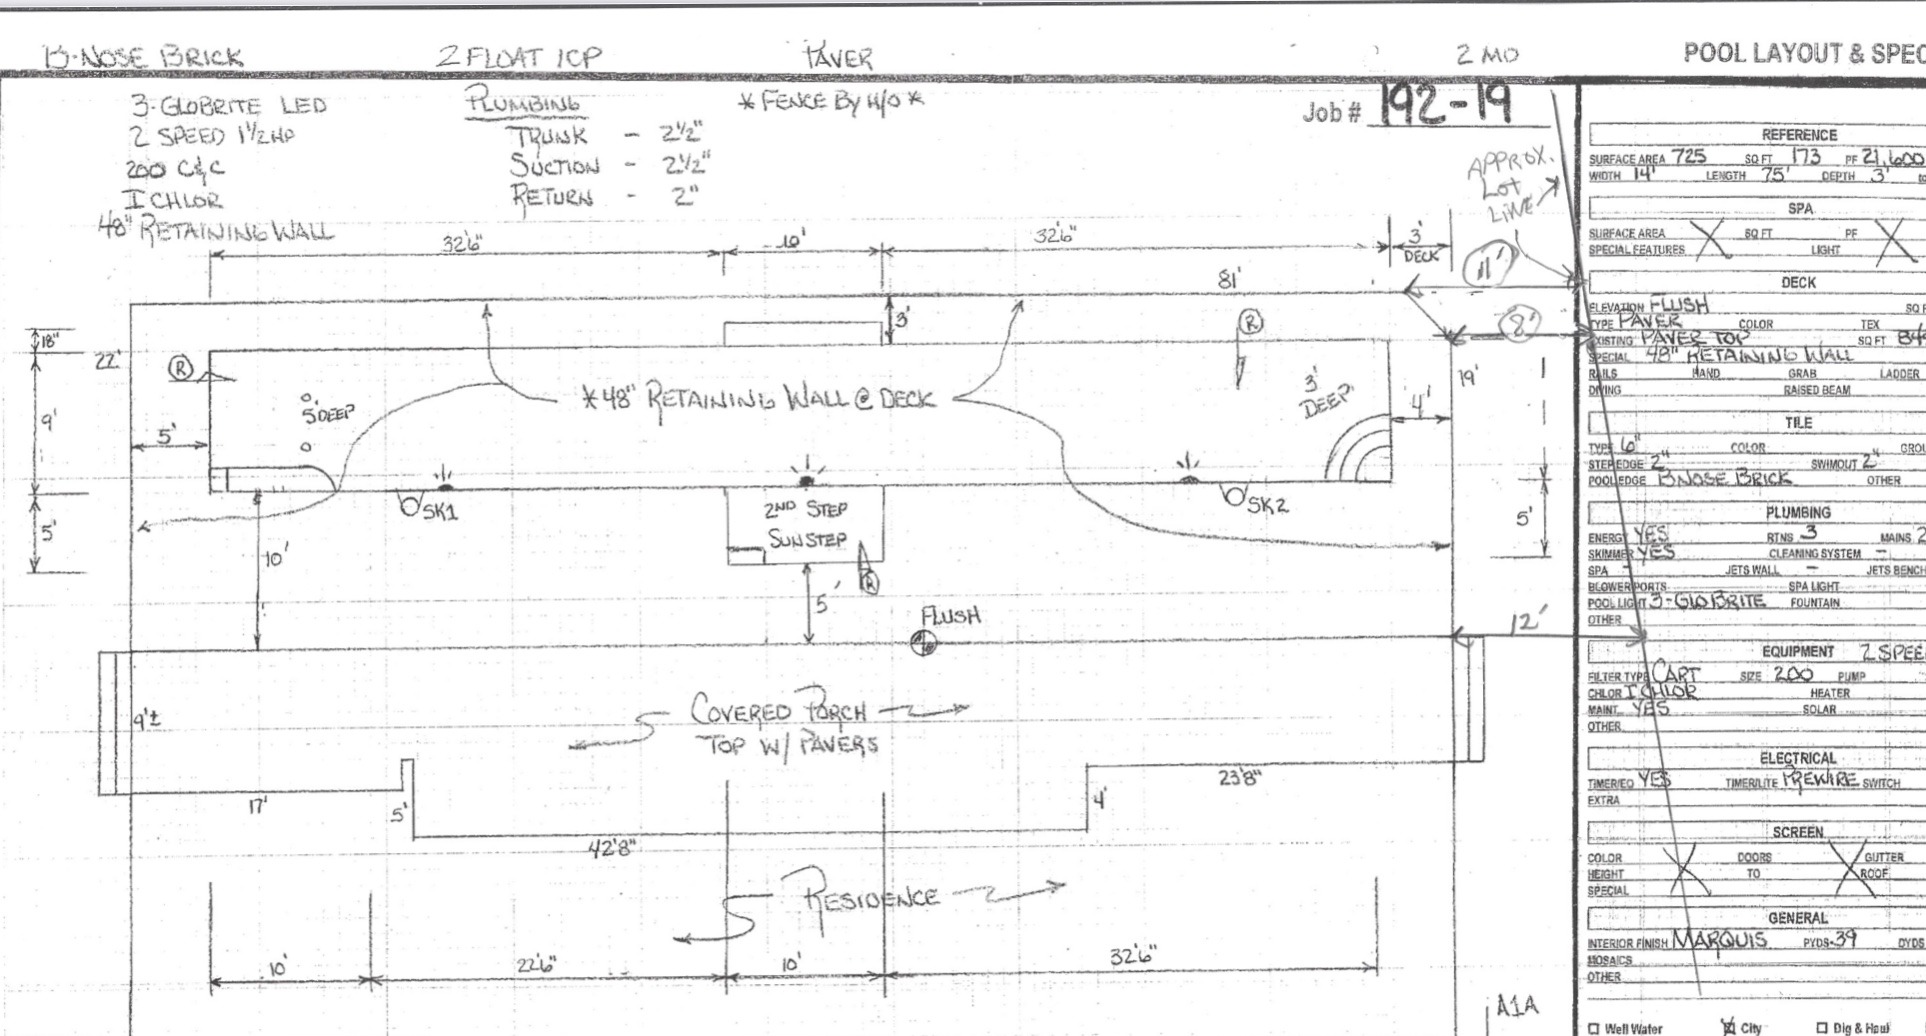 B-NOSE BRICK 2 FLOAT ICP PAVER 2 MO POOL LAYOUT & SPEC
3-GLOBRITE LED
2 SPEED 1½ HP
200 C&C
I CHLOR
48" RETAINING WALL
PLUMBING
TRUNK - 2½"
SUCTION - 2½"
RETURN - 2"
* FENCE BY H/O *
Job # 192-19
APPROX.
LOT
LINE
32'6" 10' 32'6" 3'
DECK
11'
81'
8'
3'
18"
22'
R
R
9'
5'
5' DEEP
* 48" RETAINING WALL @ DECK
3'
DEEP
4'
19'
5'
SK1
2ND STEP
SUNSTEP
SK2
5'
10'
R
5'
FLUSH
12'
9'±
COVERED PORCH
TOP W/ PAVERS
17'
5'
42'8"
4'
23'8"
RESIDENCE
10' 22'6" 10' 32'6"
A1A
REFERENCE
SURFACE AREA 725 SQ FT 173 PF 21,600
WIDTH 14' LENGTH 75' DEPTH 3'
SPA
SURFACE AREA SQ FT PF
SPECIAL FEATURES LIGHT
DECK
ELEVATION FLUSH SQ F
TYPE PAVER COLOR TEX
EXISTING PAVER TOP SQ FT
SPECIAL 48" RETAINING WALL
RAILS HAND GRAB LADDER
DIVING RAISED BEAM
TILE
TYPE 6" COLOR GROU
STEP EDGE 2" SWIMOUT 2"
POOL EDGE BNOSE BRICK OTHER
PLUMBING
ENERGY YES RTNS 3 MAINS 2
SKIMMER YES CLEANING SYSTEM -
SPA - JETS WALL - JETS BENCH
BLOWER PORTS SPA LIGHT
POOL LIGHT 3-GLOBRITE FOUNTAIN
OTHER
EQUIPMENT 2 SPEE
FILTER TYPE CART SIZE 200 PUMP
CHLOR I CHLOR HEATER
MAINT. YES SOLAR
OTHER
ELECTRICAL
TIMER/EQ YES TIMER/LITE PREWIRE SWITCH
EXTRA
SCREEN
COLOR DOORS GUTTER
HEIGHT TO ROOF
SPECIAL
GENERAL
INTERIOR FINISH MARQUIS PYDS-39 DYDS
MOSAICS
OTHER
Well Water City Dig & Haul